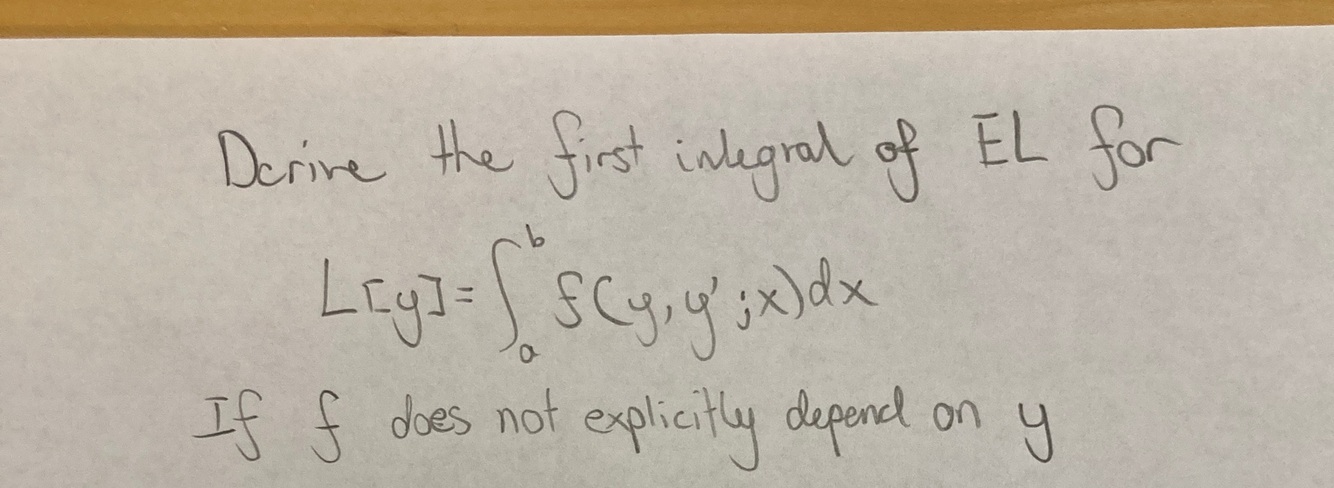 Derive the first integral of EL for
L[y]=∫_a^b f(y,y';x)dx
If f does not explicitly depend on y